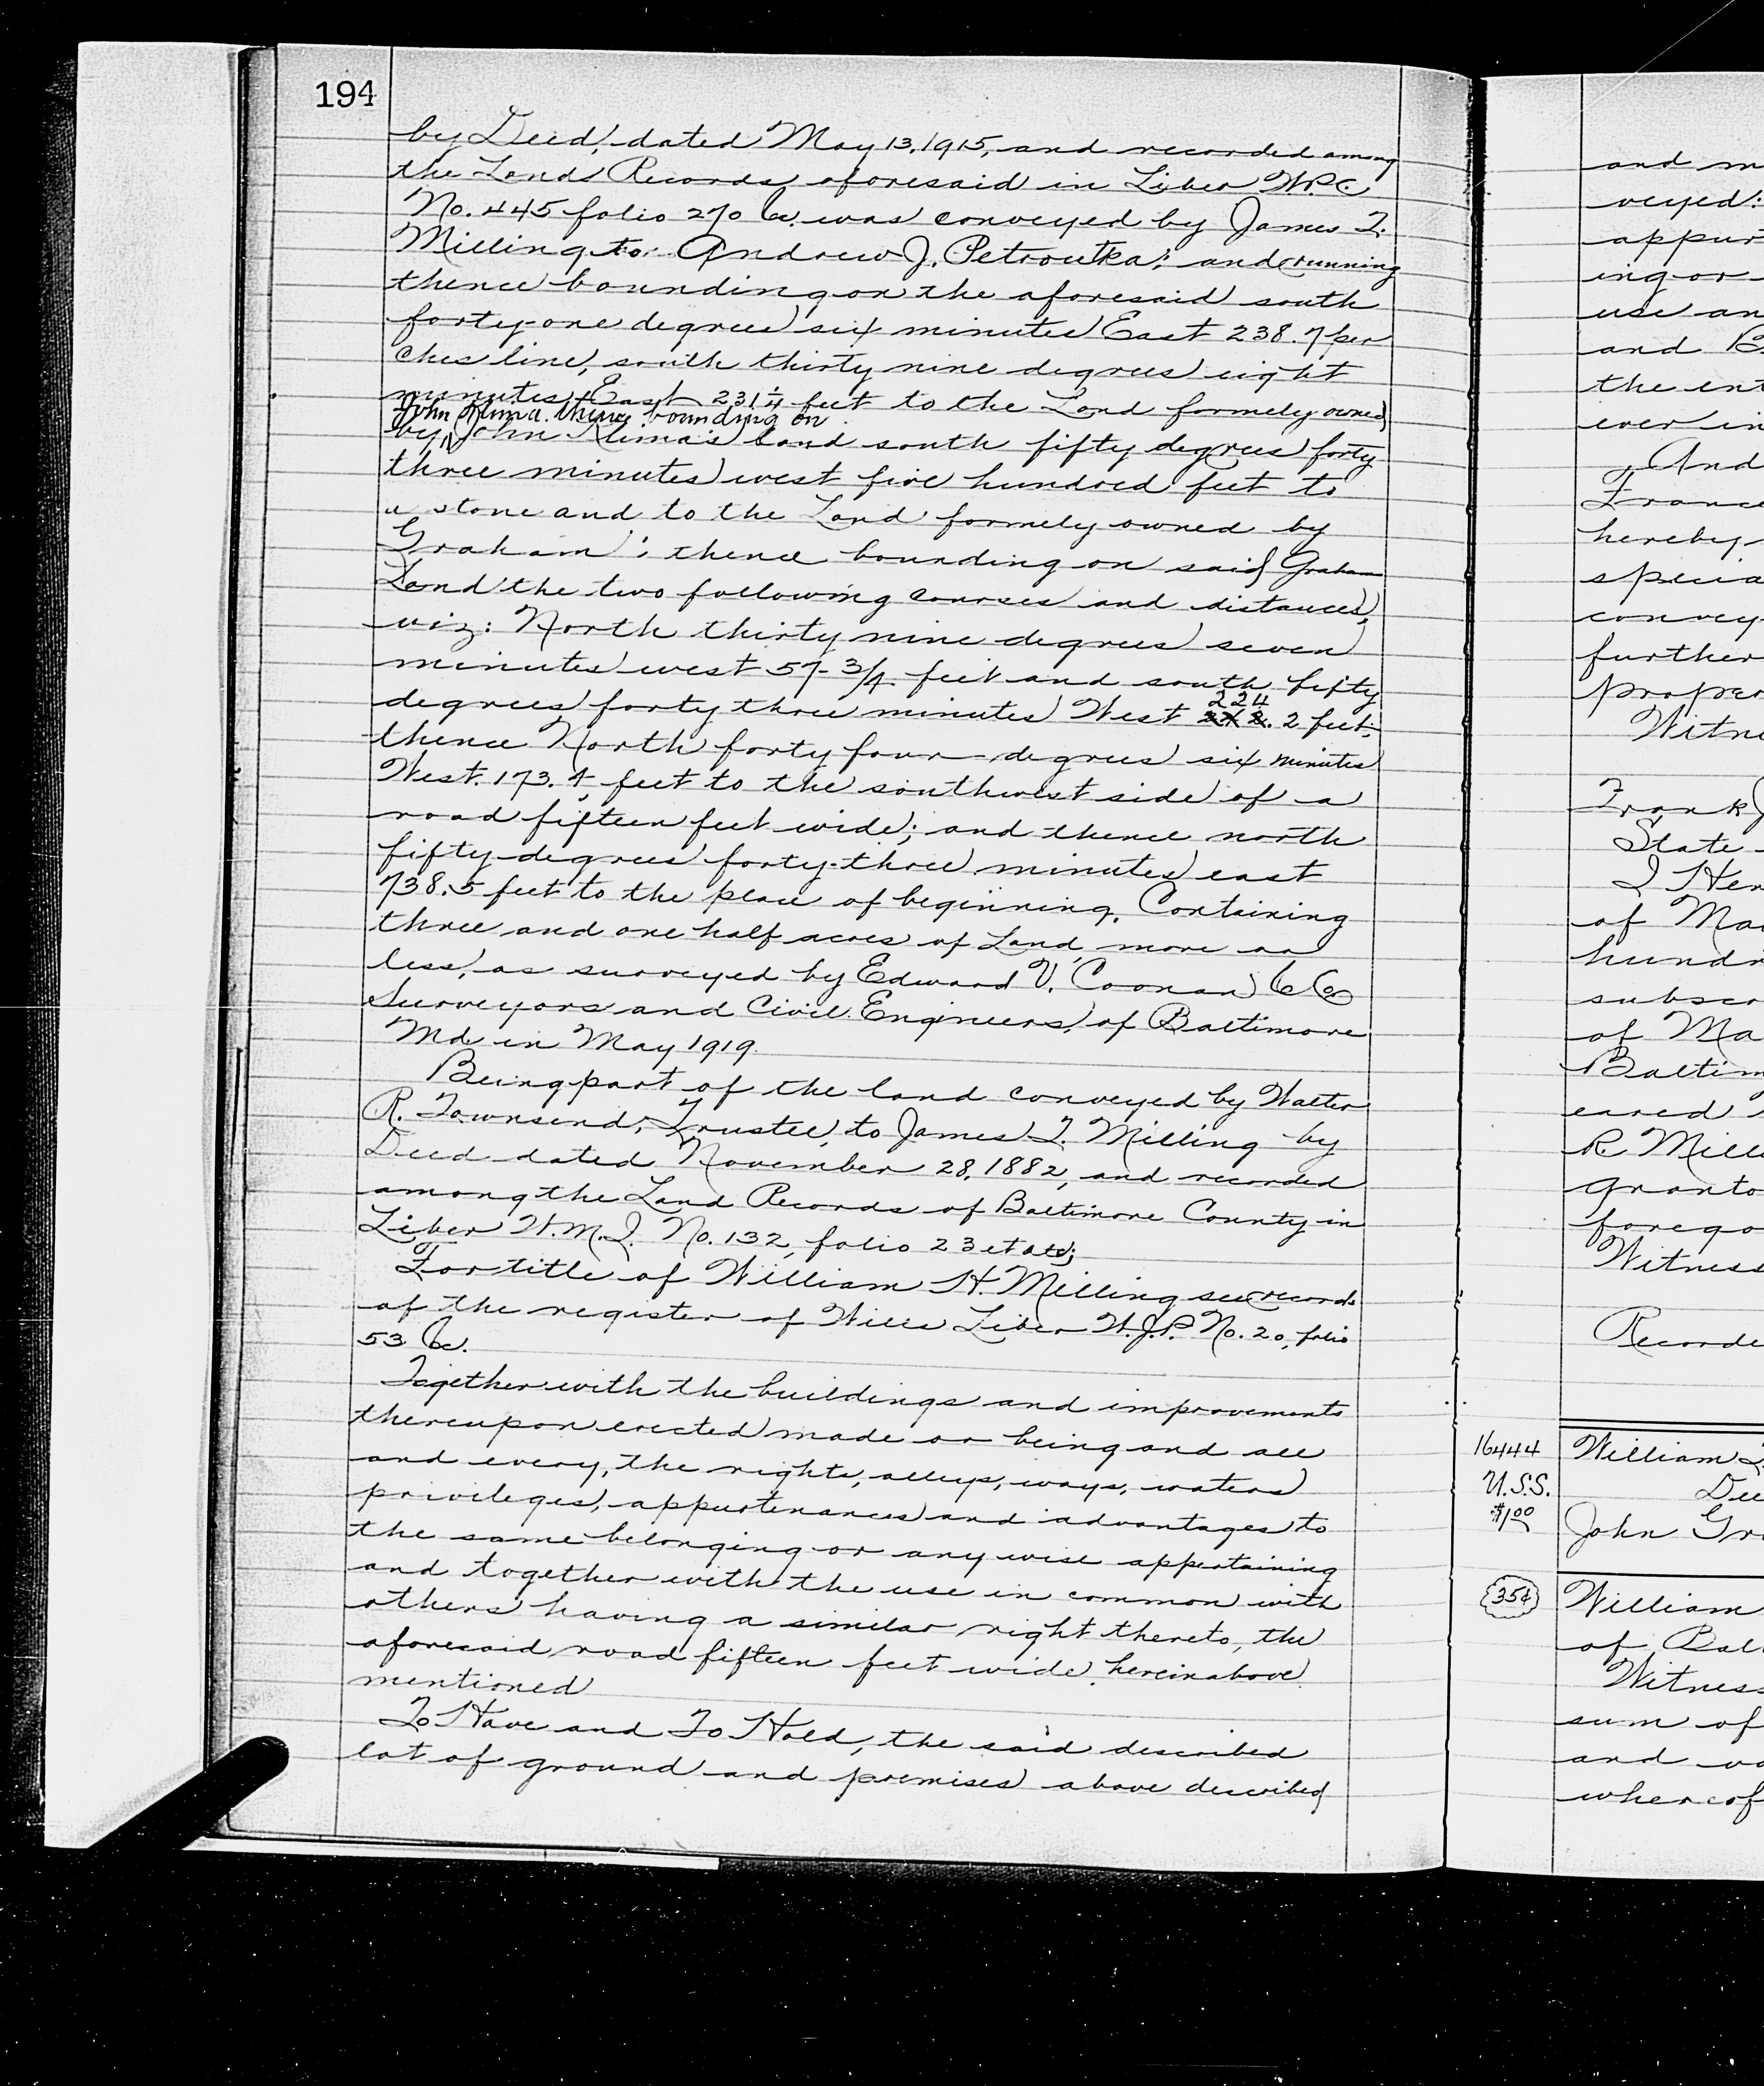 194
by Deed, dated May 13, 1915, and recorded among
the Land Records aforesaid in Liber W.P.C.
No. 445 folio 270 &c. was conveyed by James T.
Milling to Andrew J. Petroutka; and running
thence bounding on the aforesaid south
forty-one degrees six minutes East 238.7 per
ches line, south thirty nine degrees eight
minutes East 231 1/4 feet to the Land formely owned
John Klima. thence bounding on
by John Klima's land south fifty degrees forty
three minutes west five hundred feet to
a stone and to the Land formely owned by
Graham; thence bounding on said Graham
Land the two following courses and distances,
viz: North thirty nine degrees seven
minutes west 57-3/4 feet and south fifty
224
degrees forty three minutes West .2 feet;
thence North forty four degrees six minutes
West. 173.4 feet to the southwest side of a
road fifteen feet wide; and thence north
fifty-degrees forty-three minutes east
738.5 feet to the place of beginning. Containing
three and one half acres of Land, more or
less, as surveyed by Edward V. Coonan & Co
Surveyors and Civil Engineers, of Baltimore
Md. in May 1919.
Being part of the land conveyed by Walter
R. Townsend, Trustee, to James T. Milling by
Deed dated November 28, 1882, and recorded
among the Land Records of Baltimore County in
Liber W.M.I. No. 132, folio 23 et
For title of William H. Milling see records
of the register of Wills Liber W.J.P. No. 20, folio
53 &c.
Together with the buildings and improvements
thereupon erected made or being and all
and every, the rights, alleys, ways, waters
privileges, appurtenances and advantages to
the same belonging or any wise appertaining
and together with the use in common with
others having a similar right thereto, the
aforesaid road fifteen feet wide, hereinabove
mentioned
To Have and To Hold, the said described
lot of ground and premises above described
and m
veyed:
appurt
ing or
use an
and B
the ent
ever in
And
France
hereby
specia
convey
further
proper
Witne
Frank
State
I Hen
of Mar
hundr
subscr
of Ma
Baltim
eared
R Milli
granto
forego
Witness
Recorde
16444 William
U.S.S. Dee
$1.00 John Gr
35¢ William
of Balt
Witness
sum of
and va
whereof